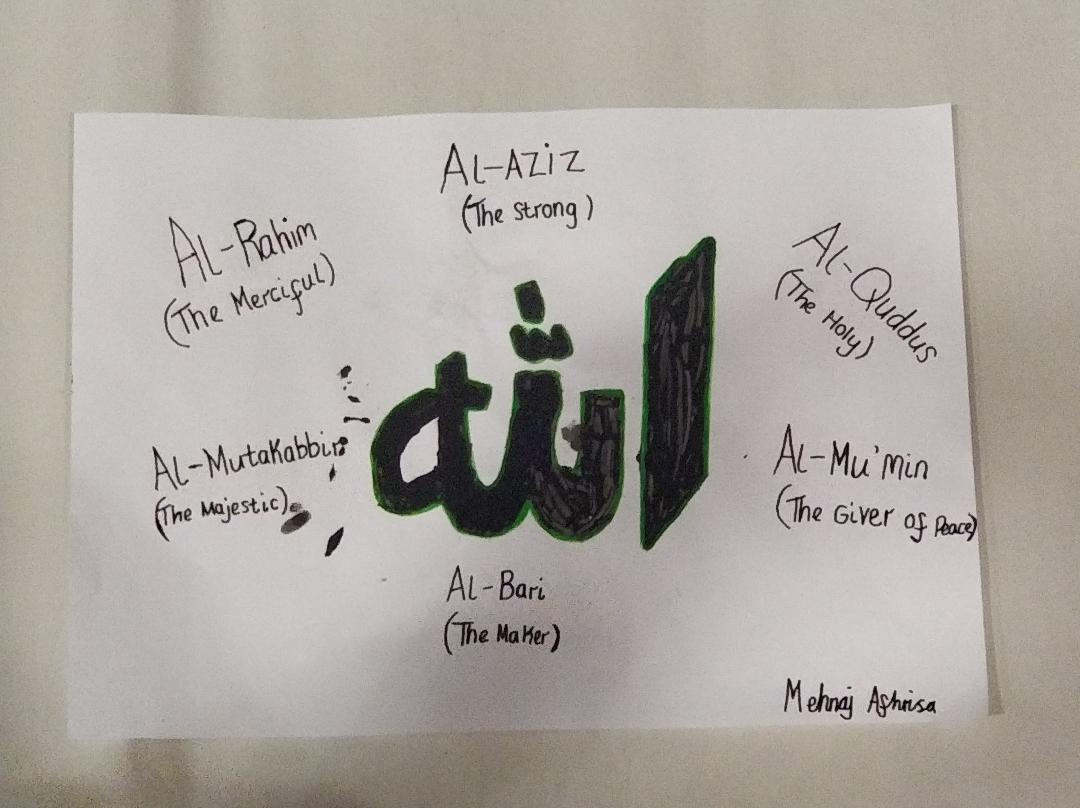 Al-Aziz
(The Strong)
Al-Rahim
(The Merciful)
Al-Quddus
(The Holy)
الله
Al-Mutakabbir
(The Majestic)
Al-Mu'min
(The Giver of Peace)
Al-Bari
(The Maker)
Mehnaj